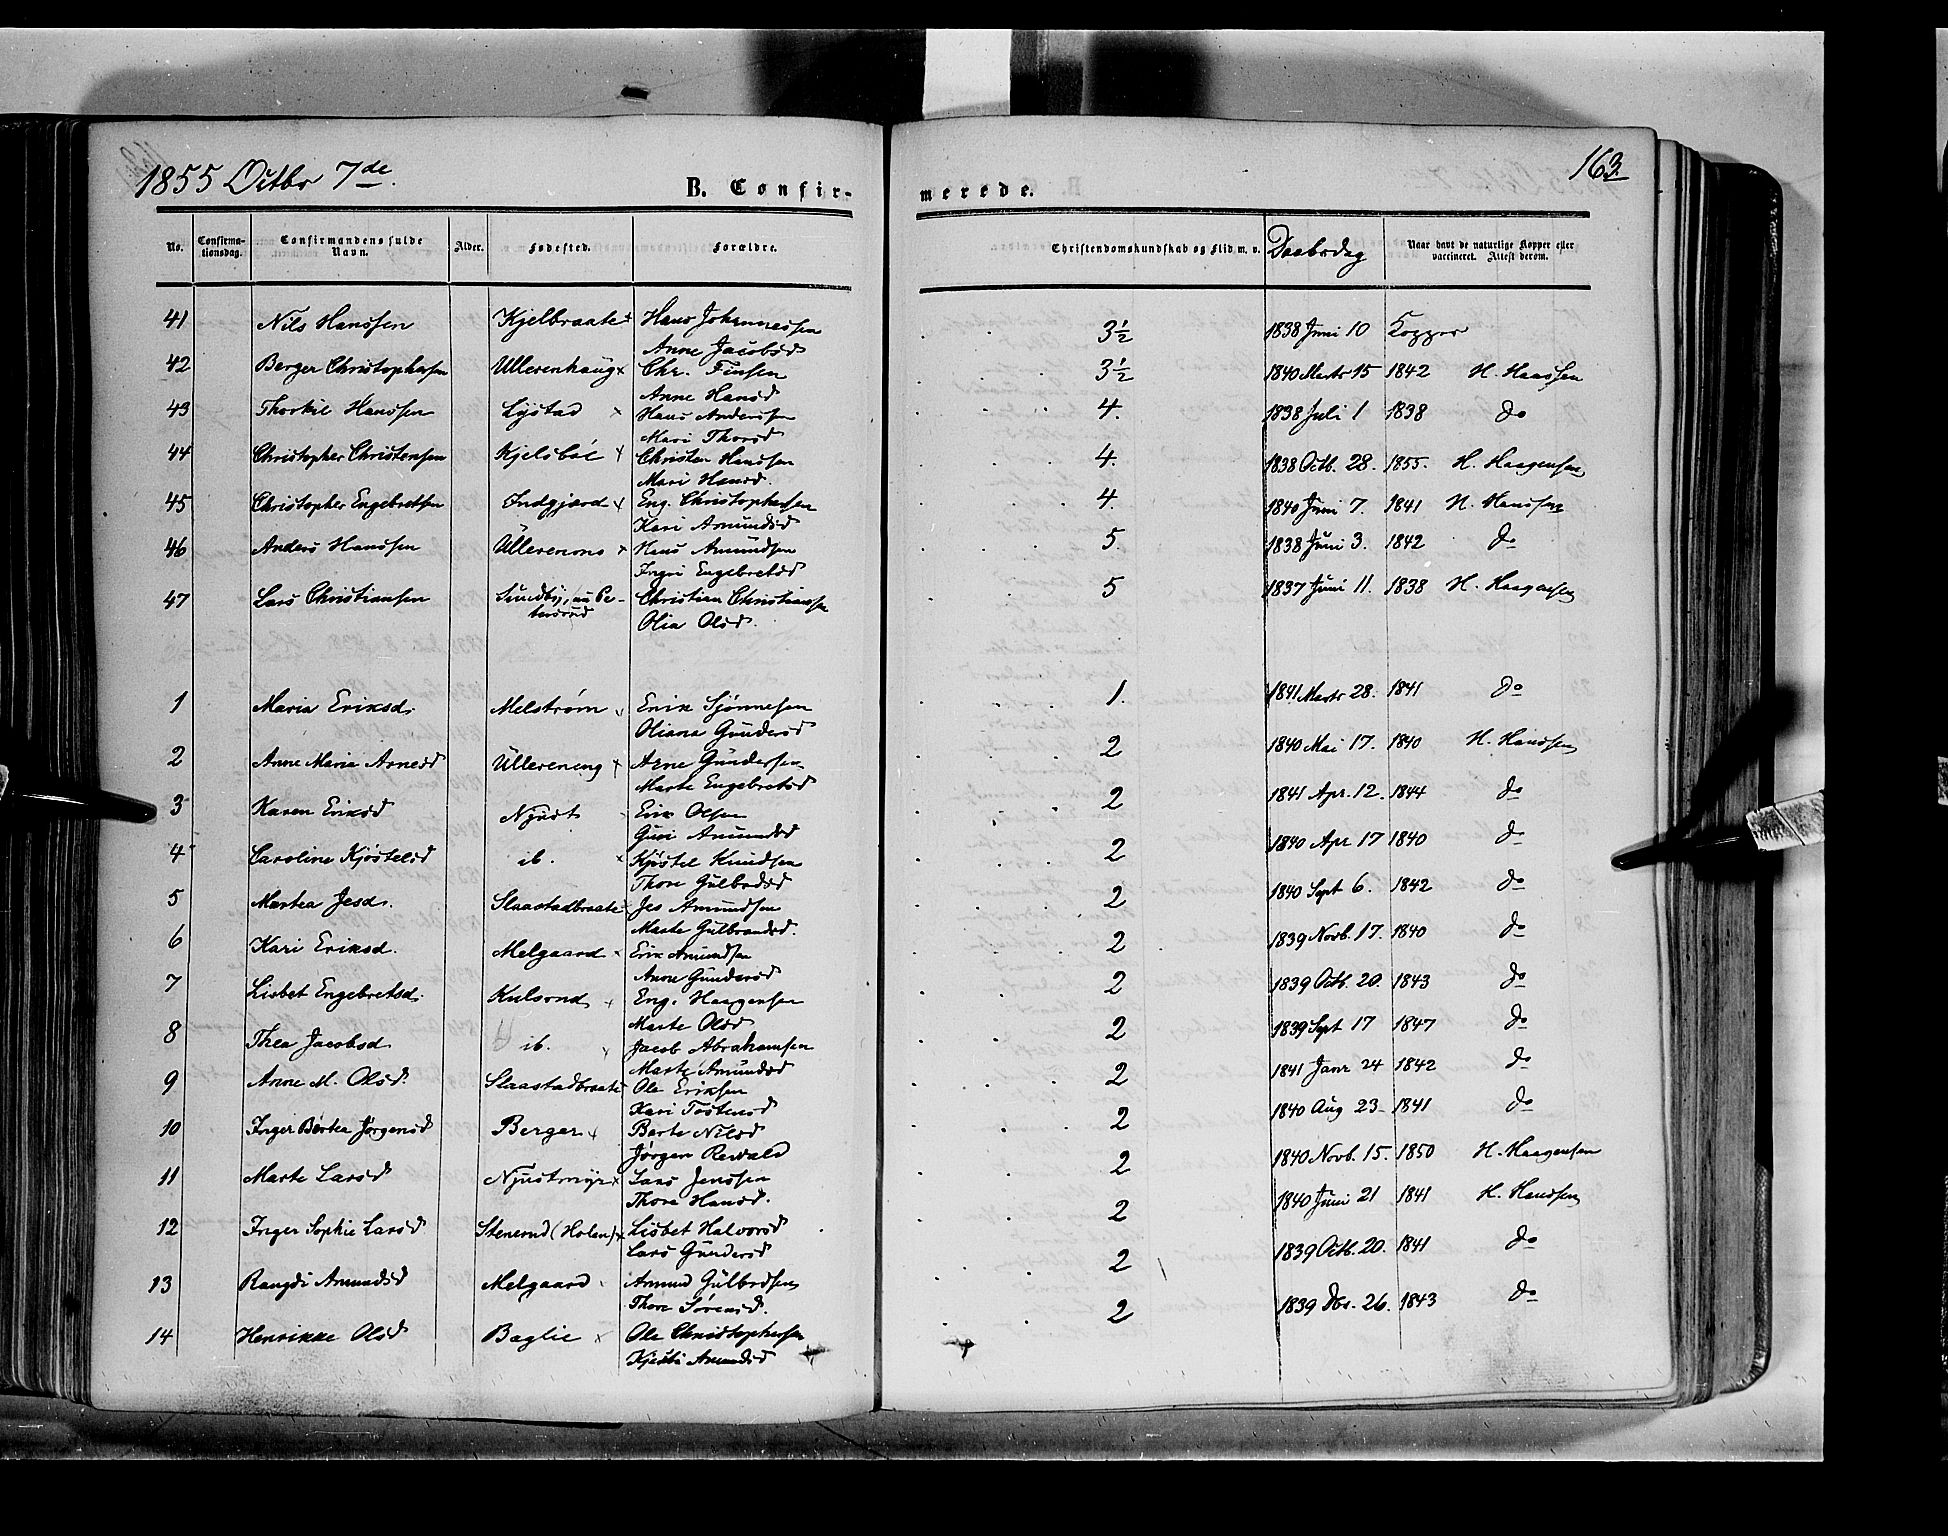 1855 Octbr 7de.
163.
B. Confir-
merede.
No. Confirma-tionsdag. Confirmandens fulde Navn. Alder. Fødested. Forældre. Christendomskundskab og Flid m. v. Daabsdag Naar havt de naturlige Kopper eller vaccineret. Attest derom.
41 Nils Hanssen Kjelbraate Hans Johannessen 3½ 1838 Juni 10 Kopper
Anne Jacobsd
42 Berger Christophersen Ullerenhaug Chr. Finsen 3½ 1840 Marts 15 1842 H. Hanssen
Anne Hansd
43 Thorkil Hanssen Lystad Hans Anderssen 4. 1838 Juli 1 1838 do
Mari Thorsd
44 Christopher Christensen Kjelsbøl Christen Hanssen 4. 1838 Octb. 28. 1855. H. Haagensen
Mari Hansd.
45 Christopher Engebretsen Indgjærd Eng. Christophersen 4. 1840 Juni 7. 1841 H. Hanssen
Kari Amundsd
46 Anders Hanssen Ullerenmo Hans Amundsen 5. 1838 Juni 3. 1842 do
Ingri Engebretsd
47 Lars Christiansen Sundby, nu Pe-tersrud Christian Christiansen 5 1837 Juni 11. 1838 H. Haagensen
Olia Olsd.
1 Maria Eriksd. Melstrøm Erik Sjønnesen 1. 1841 Marts 28. 1841 do
Oliana Gundersd
2 Anne Maria Arnesd Ullereneng Arne Gundersen 2 1840 Mai 17. 1840 H. Hanssen
Marte Engebretsd
3 Karen Eriksd Njust Erik Olsen 2 1841 Apr. 12. 1844 do
Guri Amundsd
4 Caroline Kjøstelsd ib. Kjøstel Knudsen 2 1840 Apr 17 1840 do
Thore Gulbrdsd
5 Martea Jesd. Slaastadbraate Jes Amundsen 2 1840 Sept 6. 1842 do
Marte Gulbrandsd.
6 Kari Eriksd. Melgaard Erik Amundsen 2 1839 Novb. 17. 1840 do
Anne Gundersd
7 Lisbet Engebretsd. Kulsrud Eng. Haagensen 2 1839 Octb. 20. 1843 do
Marte Olsd
8 Thea Jacobsd ib. Jacob Abrahamsen 2 1839 Sept 17 1847 do
Marte Amundsd
9 Anne M. Olsd. Slaastadbraate Ole Eriksen 2 1841 Janr 24 1842 do
Kari Tostensd
10 Inger Bertea Jørgensd Berger Berte Nilsd 2 1840 Aug 23 1841 do
Jørgen Rewald
11 Marte Larsd Njustmyr Lars Jenssen 2 1840 Novb. 15. 1850 H. Haagensen
Thore Hansd.
12 Inger Sophie Larsd Stenerud (Holen) Lisbet Halvorsd 2 1840 Juni 21 1841 H. Hanssen
Lars Gundersd
13 Rangdi Amundsd Melgaard Amund Gulbrdsen 2 1839 Octb. 20. 1841 do
Thore Sørensd.
14 Henrikke Olsd Baglie Ole Christophersen 2 1839 Dbr. 26. 1843 do
Kjersti Amundsd